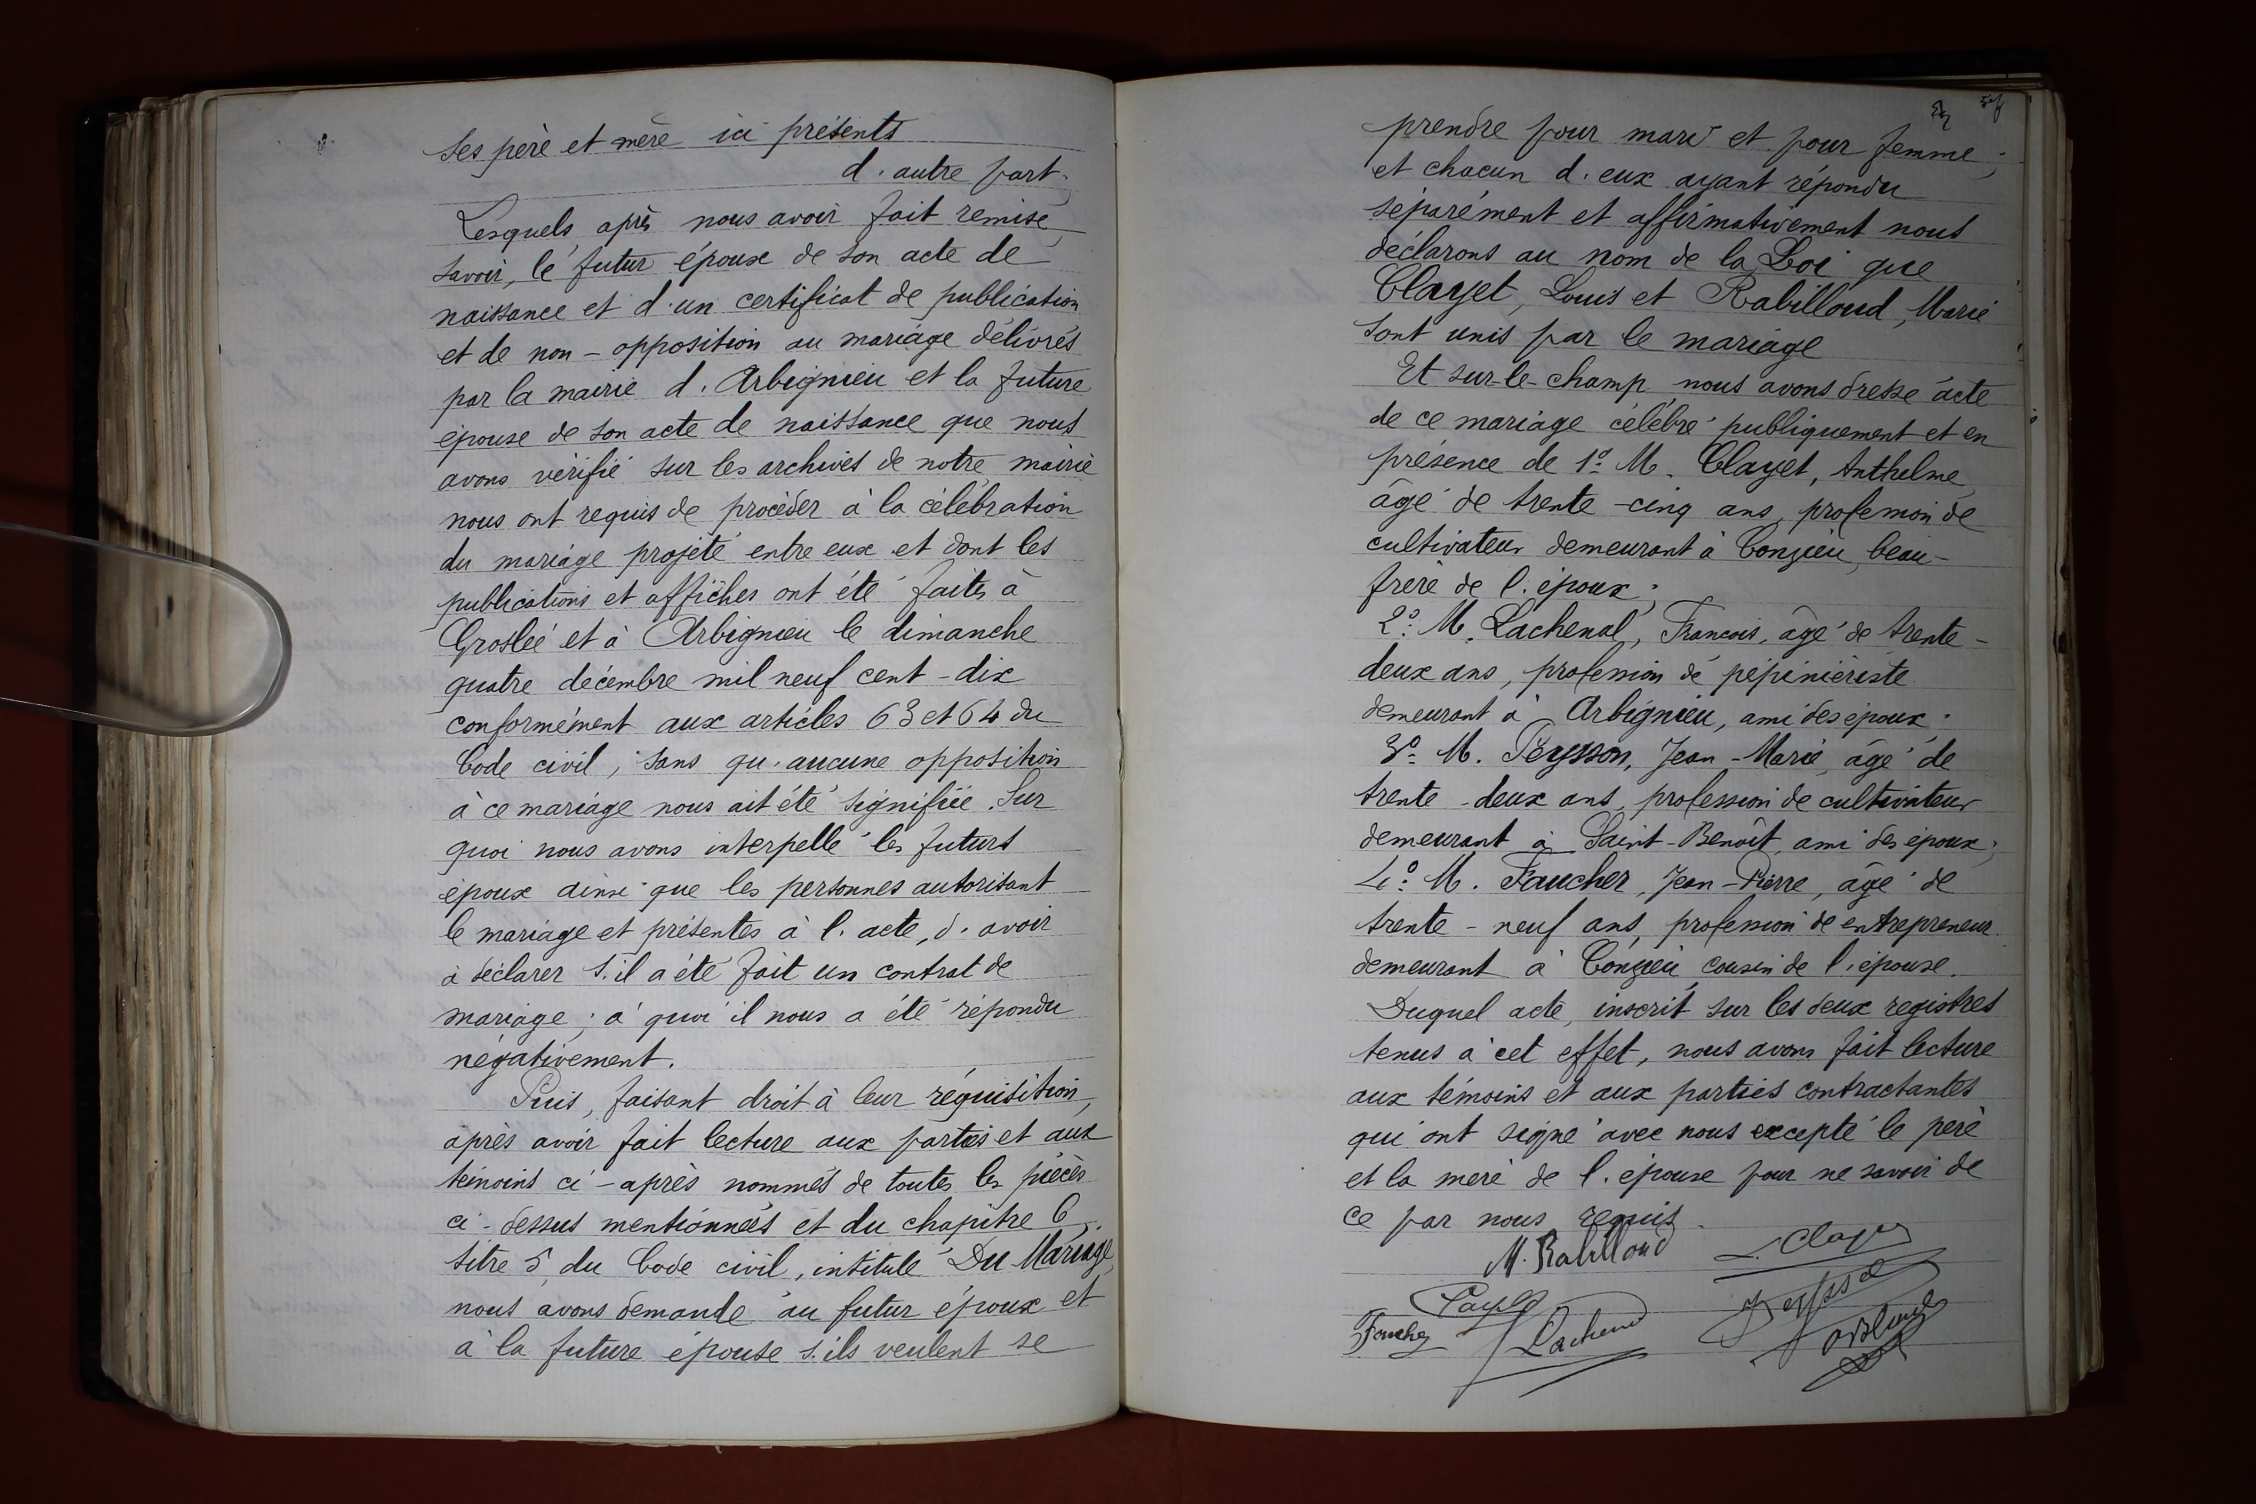 ses père et mère ici présents
d'autre part.
Lesquels, après nous avoir fait remise,
savoir, le futur époux de son acte de
naissance et d'un certificat de publication
et de non-opposition au mariage délivrés
par la mairie d'Arbignieu et la future
épouse de son acte de naissance que nous
avons vérifié sur les archives de notre mairie
nous ont requis de procéder à la célébration
du mariage projeté entre eux et dont les
publications et affiches ont été faites à
Groslée et à Arbignieu le dimanche
quatre décembre mil neuf cent-dix
conformément aux articles 63 et 64 du
Code civil, sans qu'aucune opposition
à ce mariage nous ait été signifiée. Sur
quoi nous avons interpellé les futurs
époux ainsi que les personnes autorisant
le mariage et présentes à l'acte, d'avoir
à déclarer s'il a été fait un contrat de
mariage ; à quoi il nous a été répondu
négativement.
Puis, faisant droit à leur réquisition,
après avoir fait lecture aux parties et aux
témoins ci-après nommés de toutes les pièces
ci-dessus mentionnées et du chapitre 6,
titre 5, du Code civil, intitulé Du Mariage,
nous avons demandé au futur époux et
à la future épouse s'ils veulent se
prendre pour mari et pour femme ;
et chacun d'eux ayant répondu
séparément et affirmativement nous
déclarons au nom de la Loi que
Clayet, Louis et Rabilloud, Marie
sont unis par le mariage
Et sur-le-champ nous avons dressé acte
de ce mariage célébré publiquement et en
présence de 1º M. Clayet, Anthelme
âgé de trente-cinq ans, profession de
cultivateur demeurant à Conzieu, beau-
frère de l'époux ;
2º M. Lachenal, François, âgé de trente-
deux ans, profession de pépiniériste
demeurant à Arbignieu, ami des époux ;
3º M. Peysson, Jean-Marie, âgé de
trente-deux ans, profession de cultivateur
demeurant à Saint-Benoît, ami des époux ;
4º M. Faucher, Jean-Pierre, âgé de
trente-neuf ans, profession de entrepreneur
demeurant à Conzieu, cousin de l'épouse.
Duquel acte, inscrit sur les deux registres
tenus à cet effet, nous avons fait lecture
aux témoins et aux parties contractantes
qui ont signé avec nous excepté le père
et la mère de l'épouse pour ne savoir de
ce par nous requis.
M. Rabilloud
Lachenal